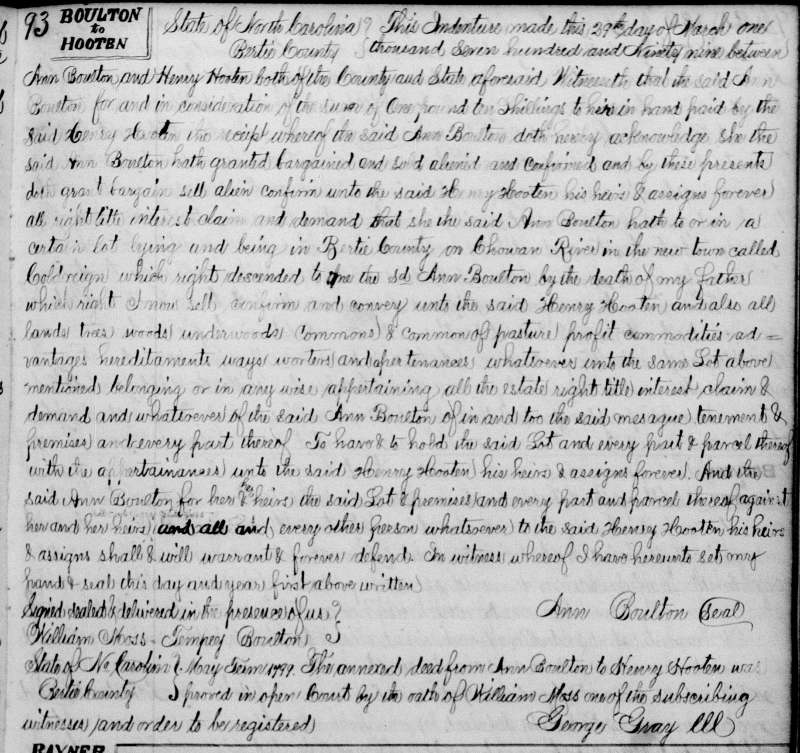 93 BOULTON
to
HOOTEN
State of North Carolina } This Indenture made this 29th day of March one
Bertie County } thousand Seven hundred and Ninty nine between
Ann Boulton and Henry Hooten both of the County and State aforesaid Witnesseth that the said Ann
Boulton for and in consideration of the sum of One pound ten Shillings to him in hand paid by the
said Henry Hooten the receipt whereof the said Ann Boulton doth hereby acknowledge She the
said Ann Boulton hath granted bargained and sold aliened and Confirmed and by these presents
doth grant bargain sell alien confirm unto the said Henry Hooten his heirs & assigns forever
all right title interest claim and demand that she the said Ann Boulton hath to or in a
certain lot lying and being in Bertie County on Chowan River in the new town called
Coldreign which right descended to me the sd Ann Boulton by the death of my Father
which right I now sell confirm and convery unto the said Henry Hooten and also all
lands trees woods underwoods Commons & common of pasture profit commodities ad=
vantages hereditaments ways worters and apertenances whatsoever unto the same Lot above
mentioned belonging or in any wise appertaining all the estate right title interest claim &
demand and whatsoever of the said Ann Boulton of in and too the said mesague tenement &
premises and every part thereof To have & to hold the said Lot and every part & parcel thereof
with the appertainances unto the said Henry Hooten his heirs & assigns forever. And the
said Ann Boulton for her & heirs the said Lot & premises and every part and parcel thereof against
her and her heirs and all and every other person whatsoever to the said Henry Hooten his heirs
& assigns shall & will warrant & forever defend. In witness whereof I have hereunto set my
hand & seal this day and year first above written
Signed sealed & delivered in the presence of us } Ann Boulton Seal
William Moss - Tempey Boulton }
State of No Carolina } May Term 1799. The annexed deed from Ann Boulton to Henry Hooten was
Bertie County } proved in open Court by the oath of William Moss one of the subscribing
witnesses and order to be registered George Gray
RAYNER